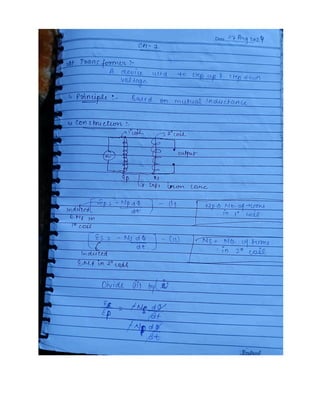 Date 27 Aug 2024
CH-7
Transformer :-
A device used to step up & step down
voltage
Principle :- Based on mutual inductance
Construction :-
1° coil 2° coil
output
Ep Es
Soft Iron core
Ep = -Np dΦ/dt - (i)
Np = No. of turns
in 1° coil
Induced
E.M.F in
1° coil
Es = -Ns dΦ/dt - (ii)
Ns = No. of turns
in 2° coil
Induced
E.M.F in 2° coil
Divide (ii) by (i)
Es/Ep = -Ns dΦ/dt
-Np dΦ/dt